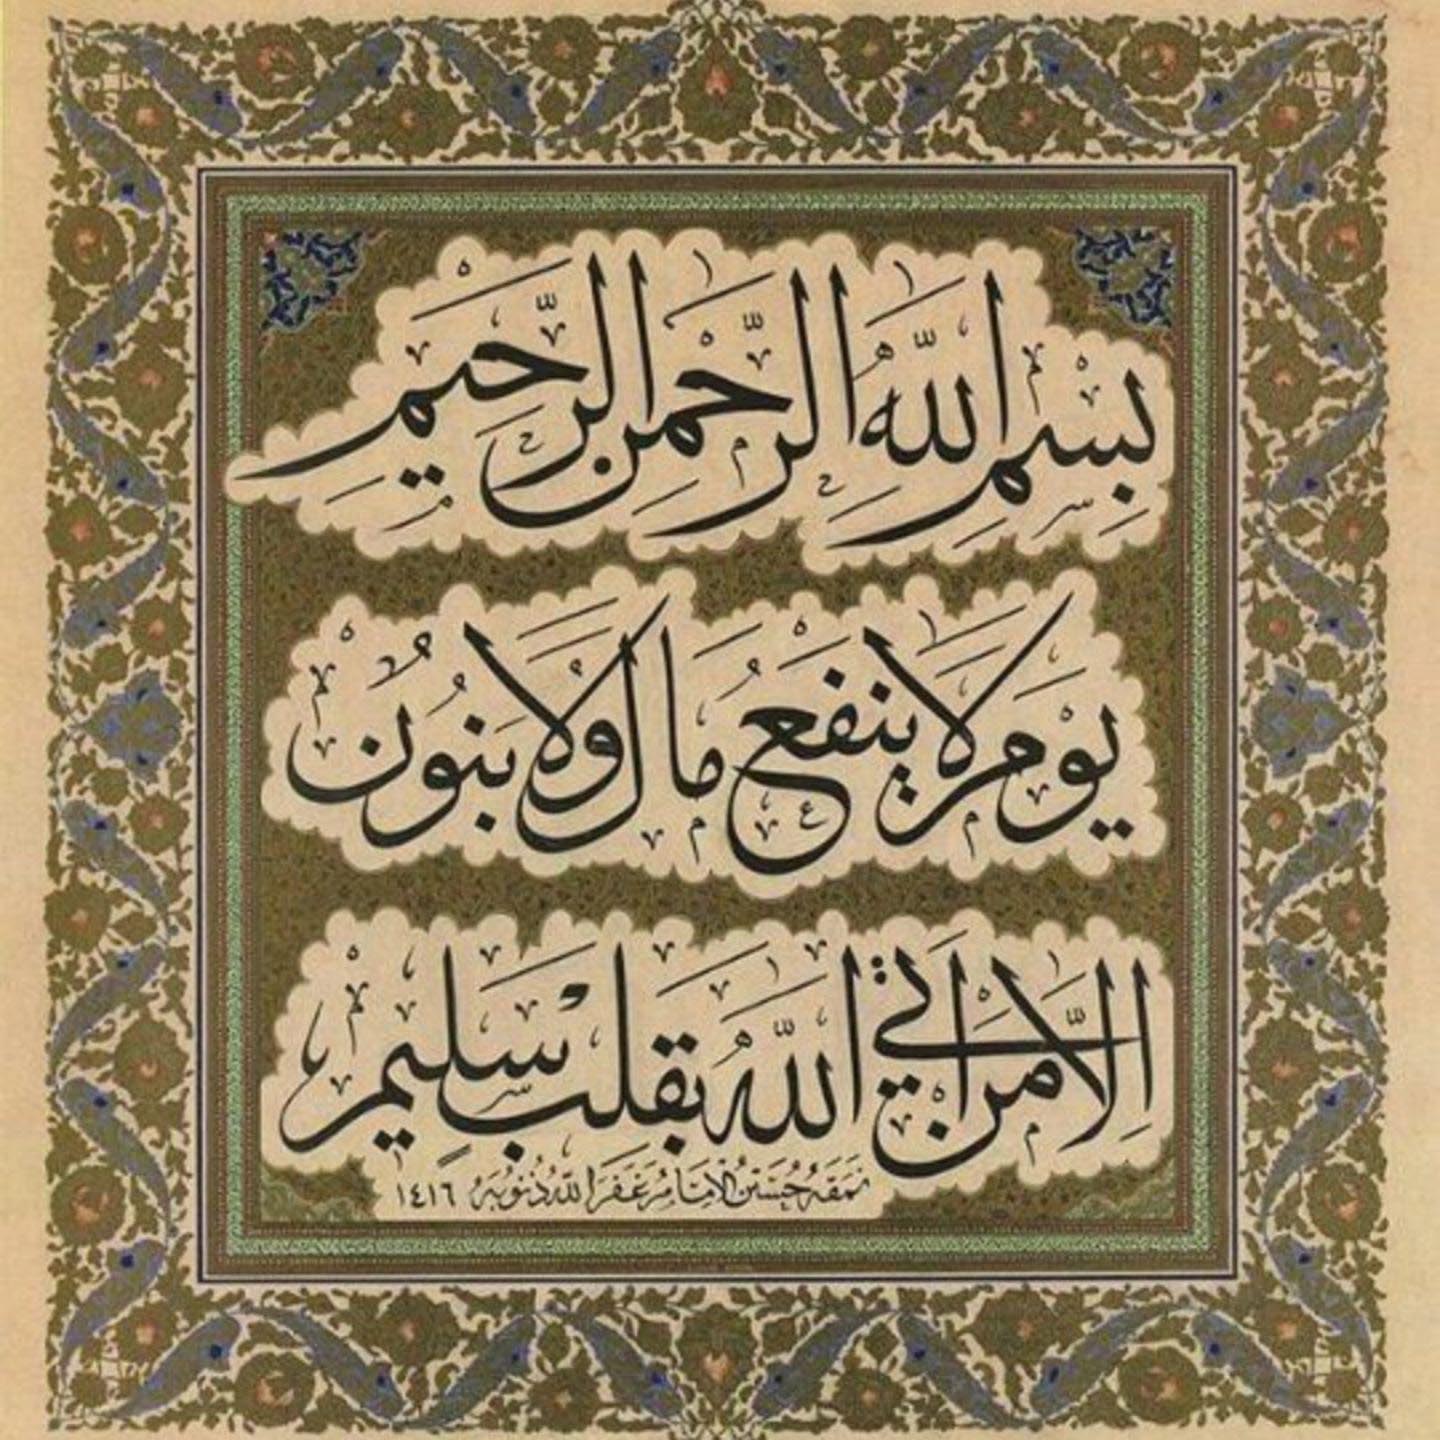 بِسْمِ اللّٰهِ الرَّحْمٰنِ الرَّحِيْمِ
يَوْمَ لَا يَنْفَعُ مَالٌ وَلَا بَنُونَ
اِلَّا مَنْ اَتَى اللّٰهَ بِقَلْبٍ سَلِيمٍ
نمقه حسين الامامر غفر الله ذنوبه ١٤١٦